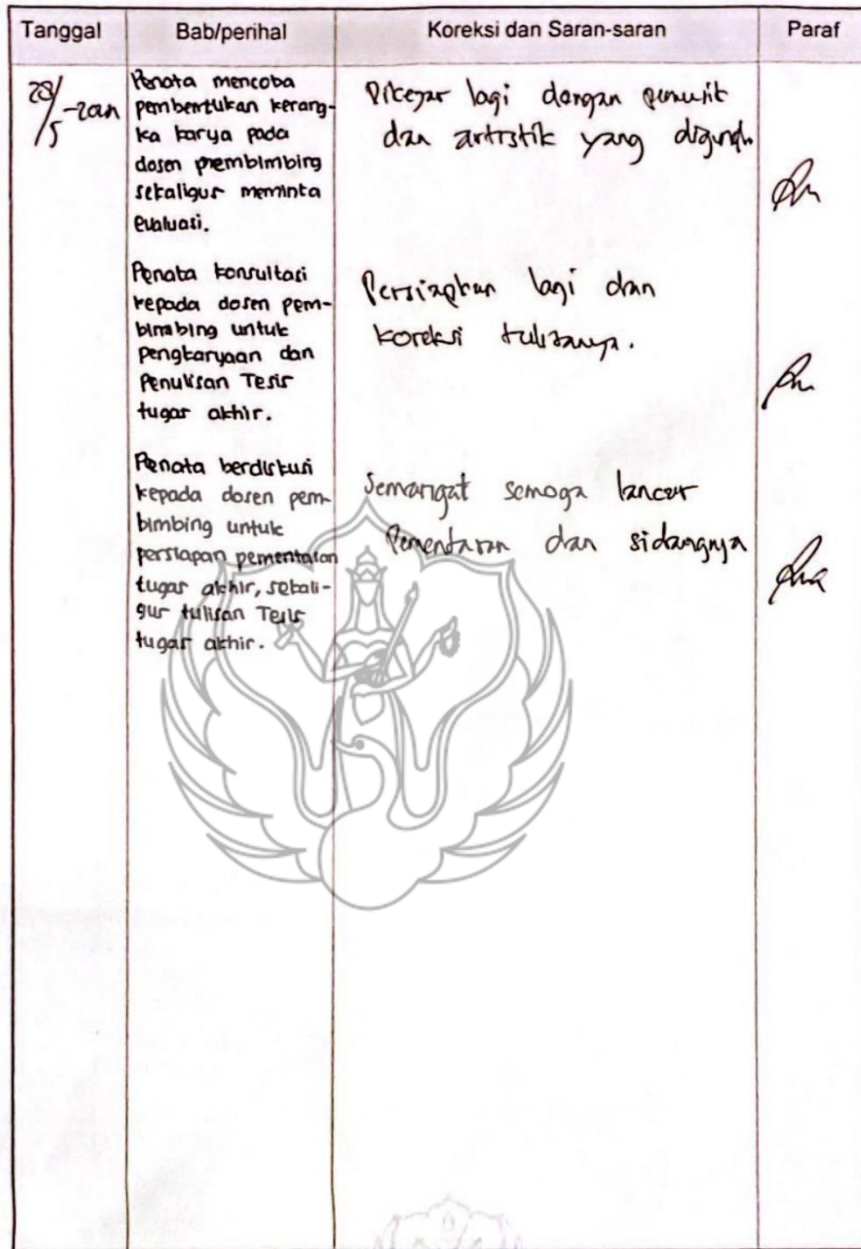 Tanggal Bab/perihal Koreksi dan Saran-saran Paraf
28/5
Penata mencoba
pembentukan kerang-
ka karya pada
dosen pembimbing
sekaligus meminta
evaluasi.
lagi dengan pemusik
dan artistik yang
Penata konsultasi
kepada dosen pem-
bimbing untuk
pengkaryaan dan
Penulisan Tesis
tugas akhir.
Persiapkan lagi dan
koreksi tulisannya.
Penata berdiskusi
kepada dosen pem-
bimbing untuk
persiapan pementasan
tugas akhir, sekali-
gus tulisan Tesis
tugas akhir.
Semangat semoga lancar
Pementasan dan sidangnya